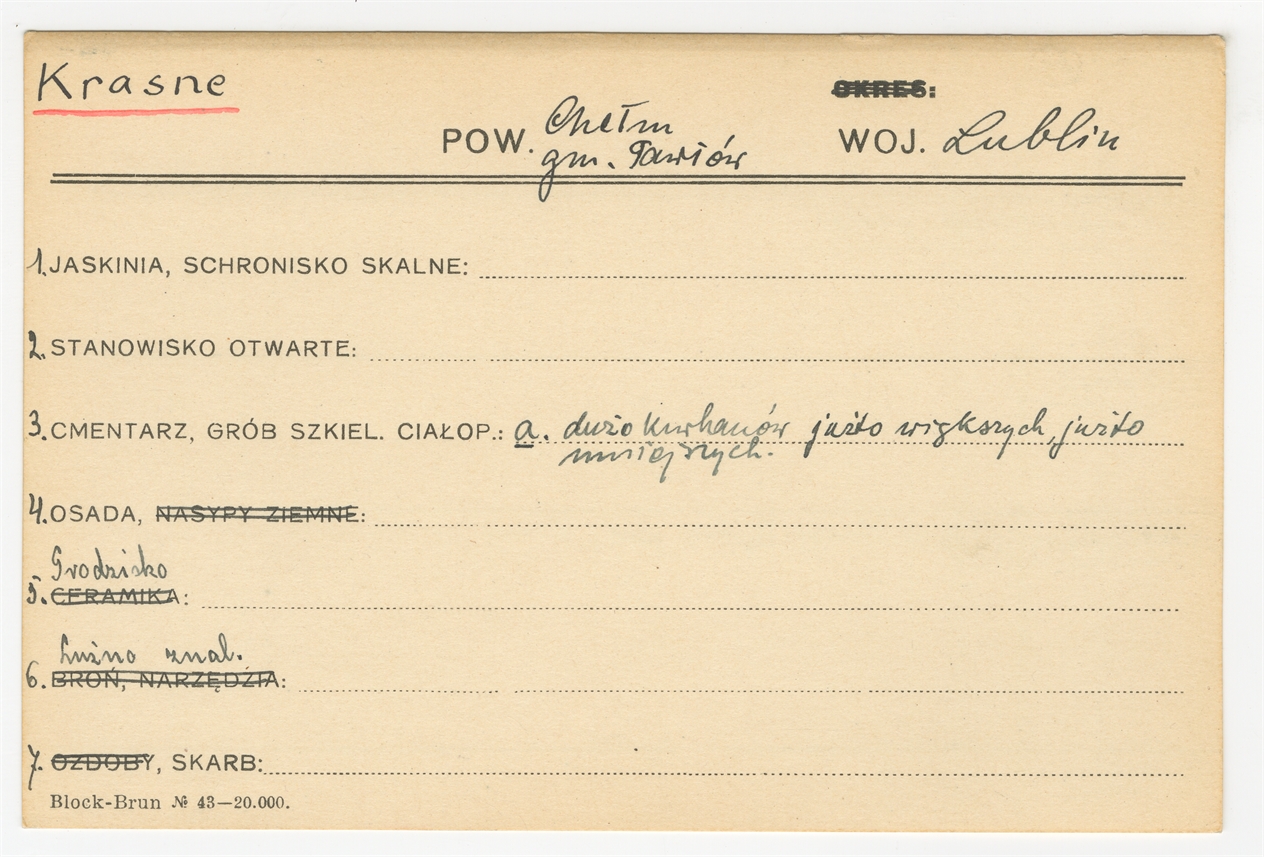 Krasne
OKRES:
POW. Chełm WOJ. Lublin
gm. Pawłów
1. JASKINIA, SCHRONISKO SKALNE:
2. STANOWISKO OTWARTE:
3. CMENTARZ, GRÓB SZKIEL. CIAŁOP.: a. dużo kurhanów już to większych, już to
mniejszych.
4. OSADA, NASYPY ZIEMNE:
Grodzisko
5. CERAMIKA:
Luźno znal.
6. BROŃ, NARZĘDZIA:
7. OZDOBY, SKARB:
Block-Brun № 43—20.000.